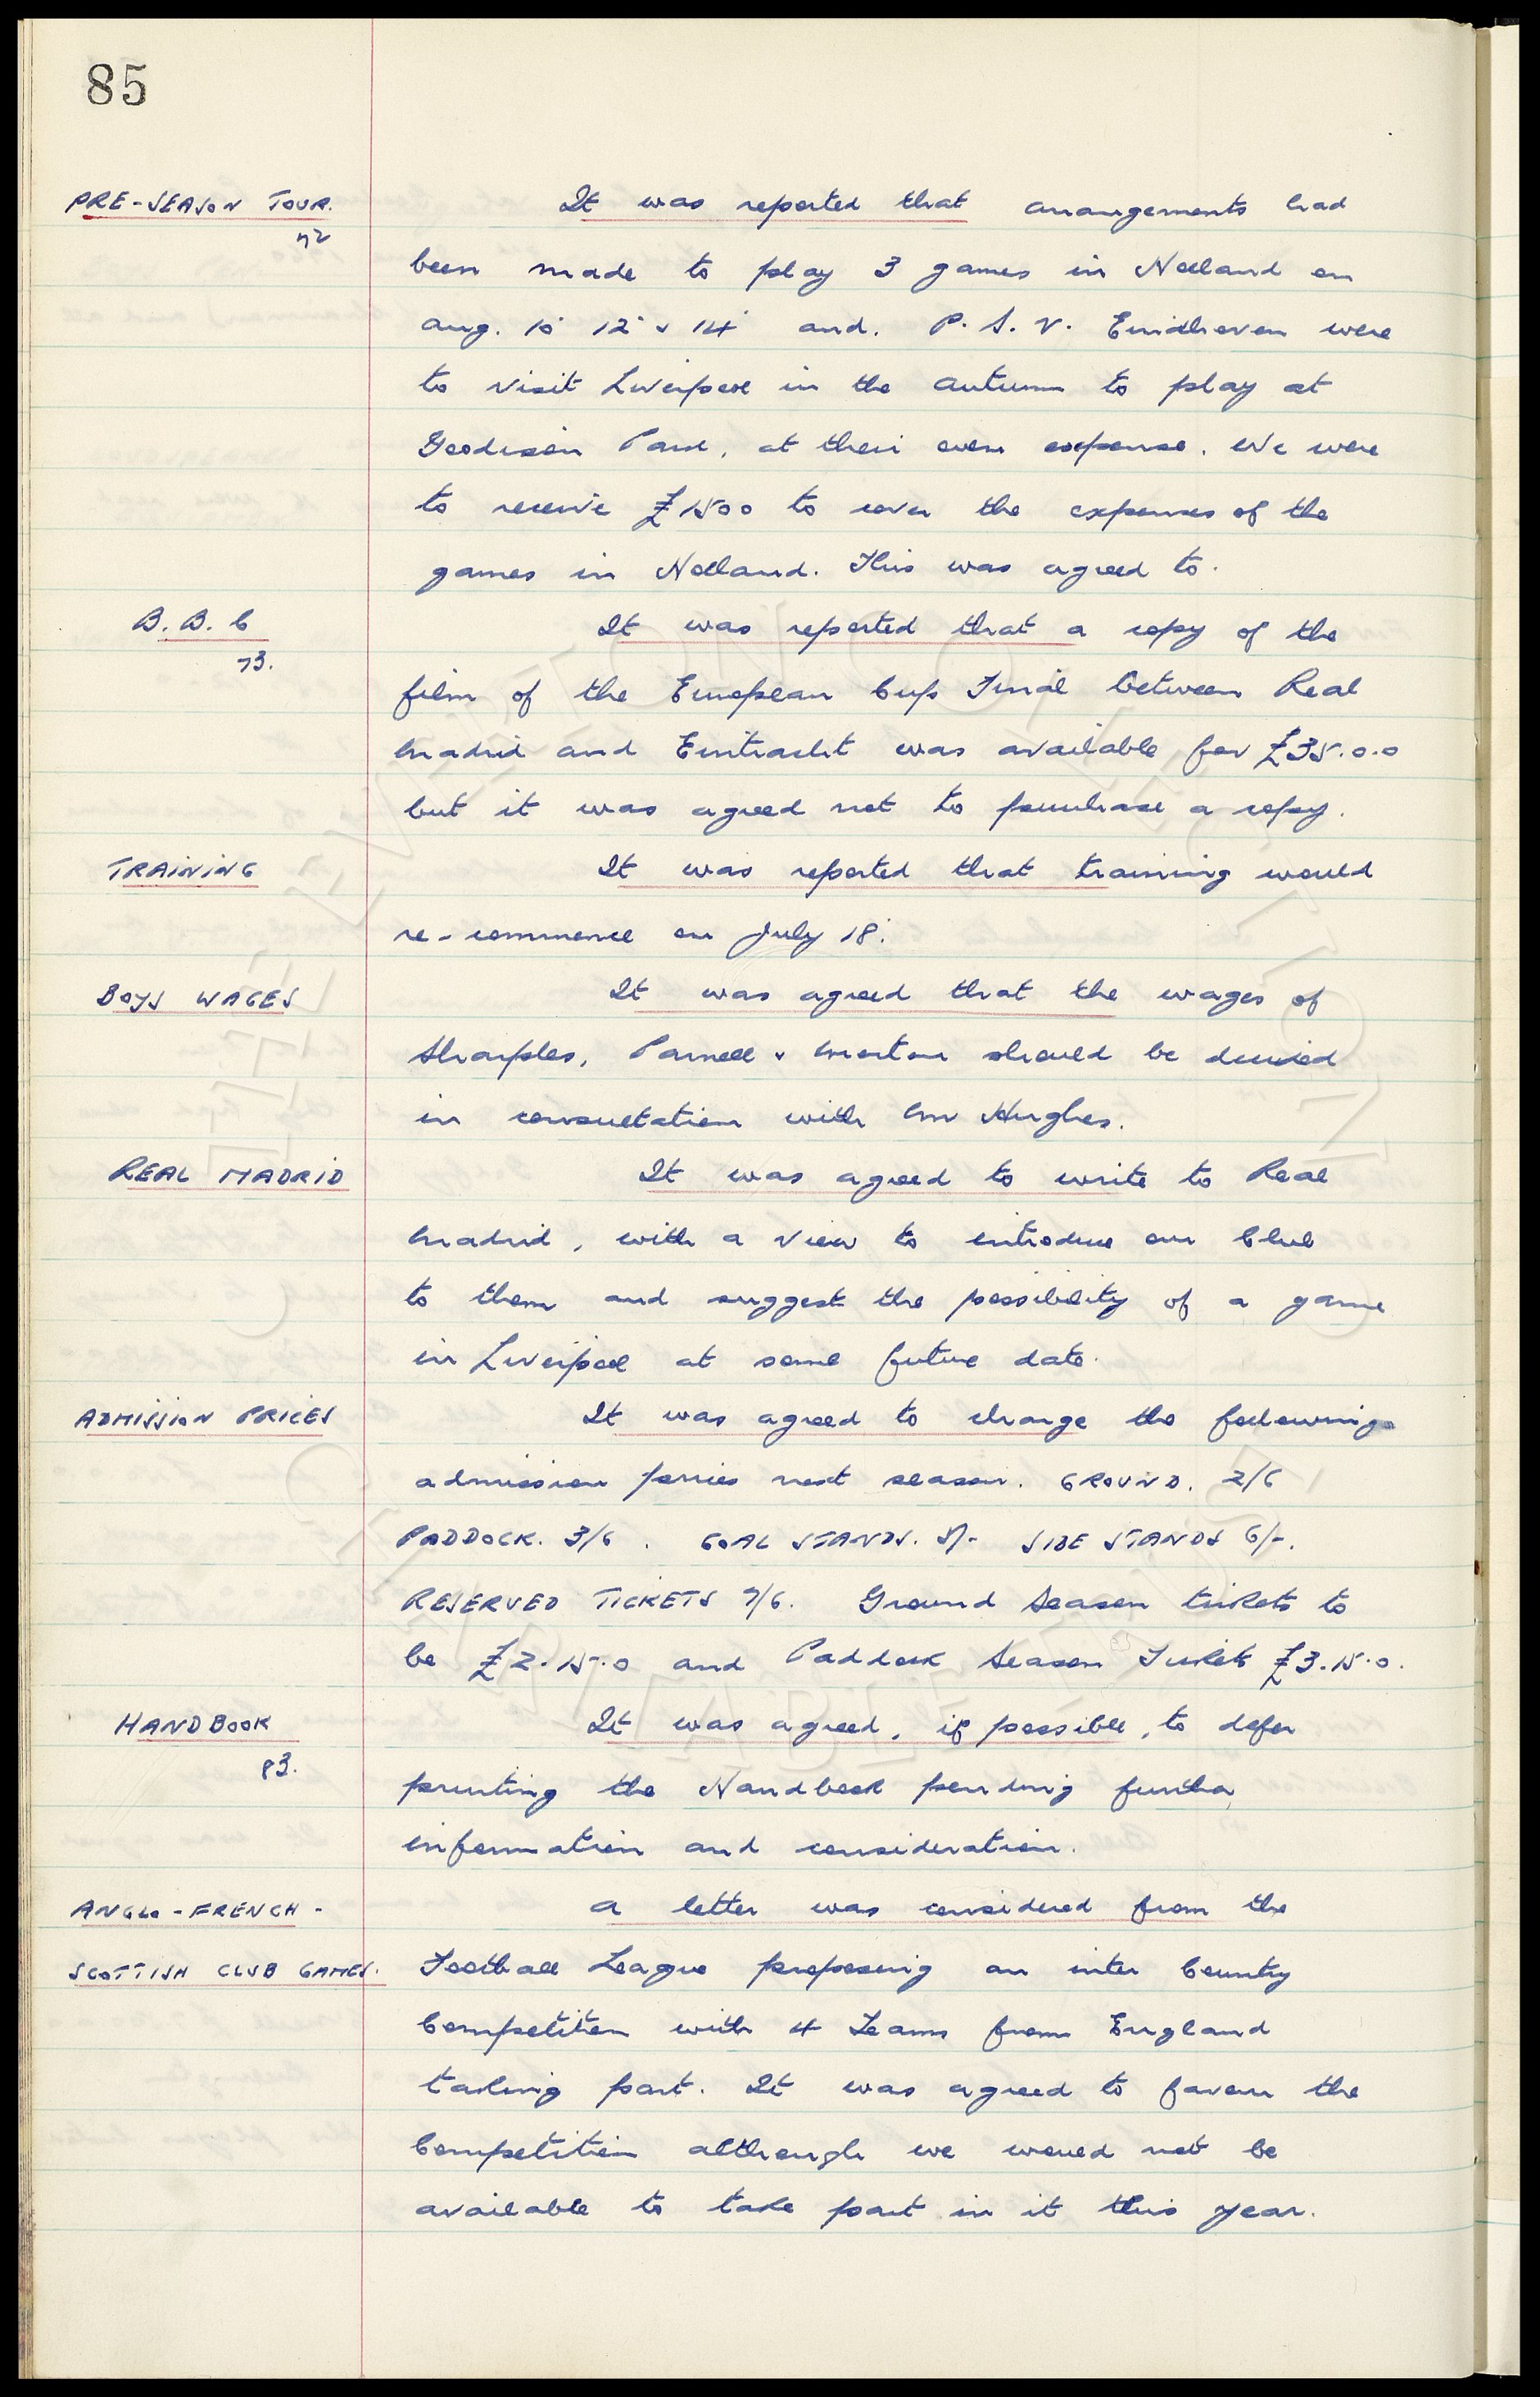 85
PRE-SEASON TOUR. It was reported that arrangements had
72
been made to play 3 games in Holland on
Aug. 10 12 & 14 and. P. S. V. Eindhoven were
to visit Liverpool in the Autumn to play at
Goodison Park, at their own expense. We were
to receive £1500 to cover the expenses of the
games in Holland. This was agreed to.
B. B. C It was reported that a copy of the
73.
film of the European Cup Final between Real
Madrid and Eintracht was available for £35.0.0
but it was agreed not to purchase a copy.
TRAINING It was reported that training would
re-commence on July 18.
BOYS WAGES It was agreed that the wages of
Sharples, Parnell & Morton should be decided
in consultation with Mr Hughes.
REAL MADRID It was agreed to write to Real
Madrid, with a view to introduce our Club
to them and suggest the possibility of a game
in Liverpool at some future date.
ADMISSION PRICES It was agreed to charge the following
admission prices next season. GROUND. 2/6
PADDOCK. 3/6. GOAL STANDS. 5/- SIDE STANDS 6/-.
RESERVED TICKETS 7/6. Ground Season tickets to
be £2.15.0 and Paddock Season Tickets £3.15.0.
HANDBOOK It was agreed, if possible, to defer
83.
printing the Handbook pending further
information and consideration.
ANGLO-FRENCH- A letter was considered from the
SCOTTISH CLUB GAMES. Football League proposing an inter Country
Competition with 4 Teams from England
taking part. It was agreed to favour the
Competition although we would not be
available to take part in it this year.